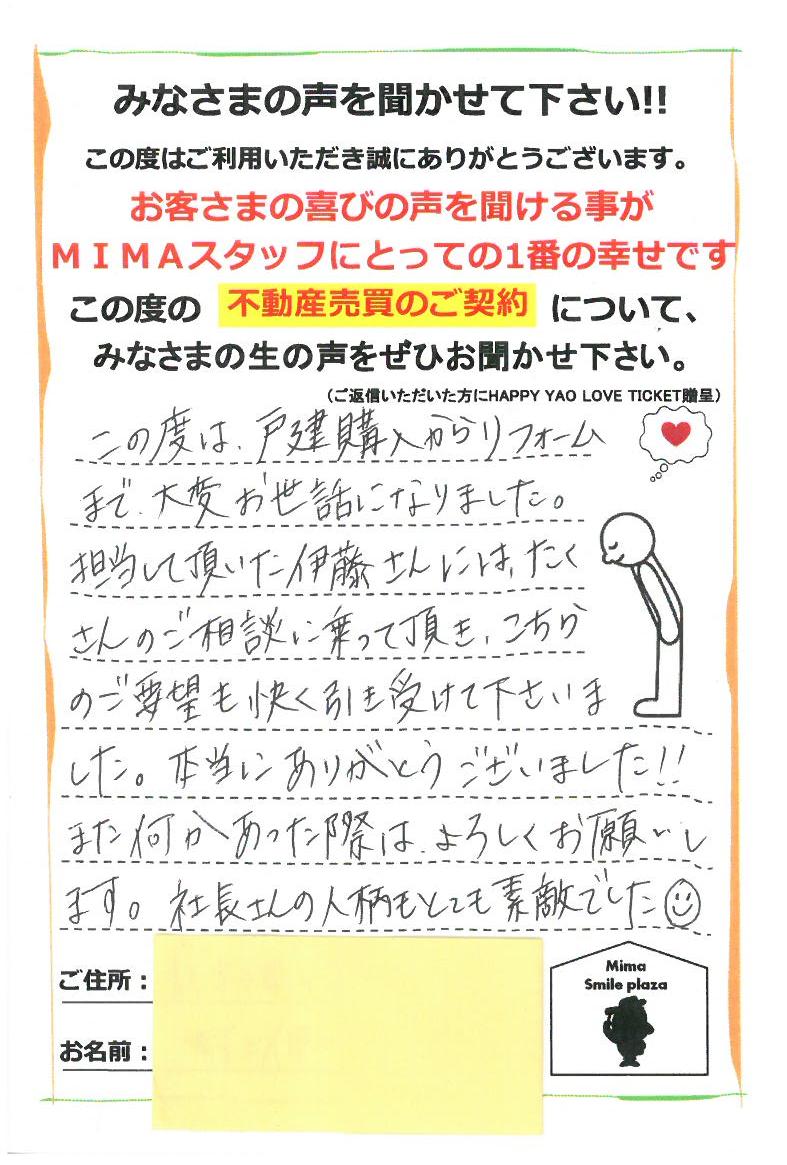 みなさまの声を聞かせて下さい!!
この度はご利用いただき誠にありがとうございます。
お客さまの喜びの声を聞ける事が
ＭＩＭＡスタッフにとっての1番の幸せです
この度の 不動産売買のご契約 について、
みなさまの生の声をぜひお聞かせ下さい。
（ご返信いただいた方にHAPPY YAO LOVE TICKET贈呈）
この度は、戸建購入からリフォーム
まで、大変お世話になりました。
担当して頂いた伊藤さんには、たく
さんのご相談に乗って頂き、こちら
のご要望も快く引き受けて下さいま
した。本当にありがとうございました!!
また何かあった際は、よろしくお願いし
ます。社長さんの人柄もとても素敵でした
ご住所：
お名前：
Mima
Smile plaza